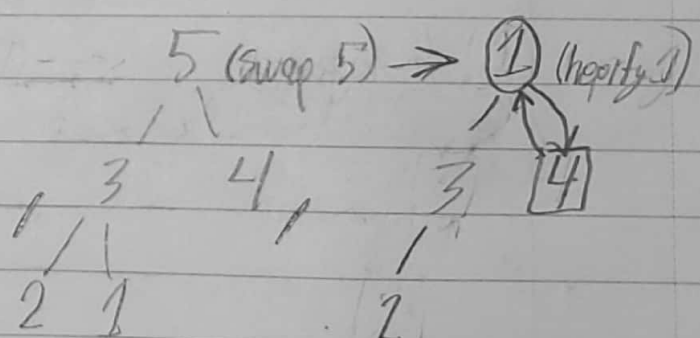 5 (swap 5) → 1 (heapify 1)
3 4, 3 4
2 1 2